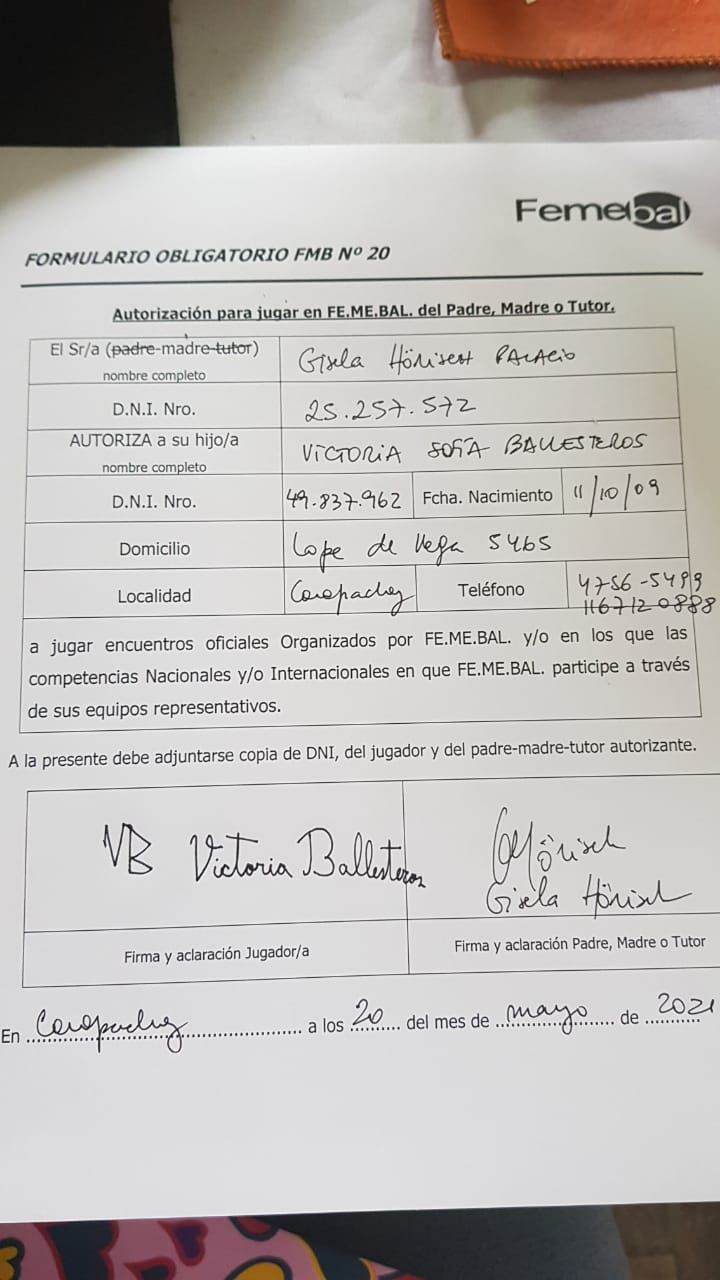 Femebal
FORMULARIO OBLIGATORIO FMB Nº 20
Autorización para jugar en FE.ME.BAL. del Padre, Madre o Tutor.
El Sr/a (padre-madre-tutor)
nombre completo
Gisela Hönisch PALACIO
D.N.I. Nro.
25.257.572
AUTORIZA a su hijo/a
nombre completo
VICTORIA SOFÍA BALLESTEROS
D.N.I. Nro.
49.837.962
Fcha. Nacimiento
11/10/09
Domicilio
Lope de Vega 5465
Localidad
Carapachay
Teléfono
4756-5499
1167120888
a jugar encuentros oficiales Organizados por FE.ME.BAL. y/o en los que las
competencias Nacionales y/o Internacionales en que FE.ME.BAL. participe a través
de sus equipos representativos.
A la presente debe adjuntarse copia de DNI, del jugador y del padre-madre-tutor autorizante.
VB Victoria Ballesteros
GHönisch
Gisela Hönisch
Firma y aclaración Jugador/a
Firma y aclaración Padre, Madre o Tutor
En Carapachay a los 20 del mes de mayo de 2021